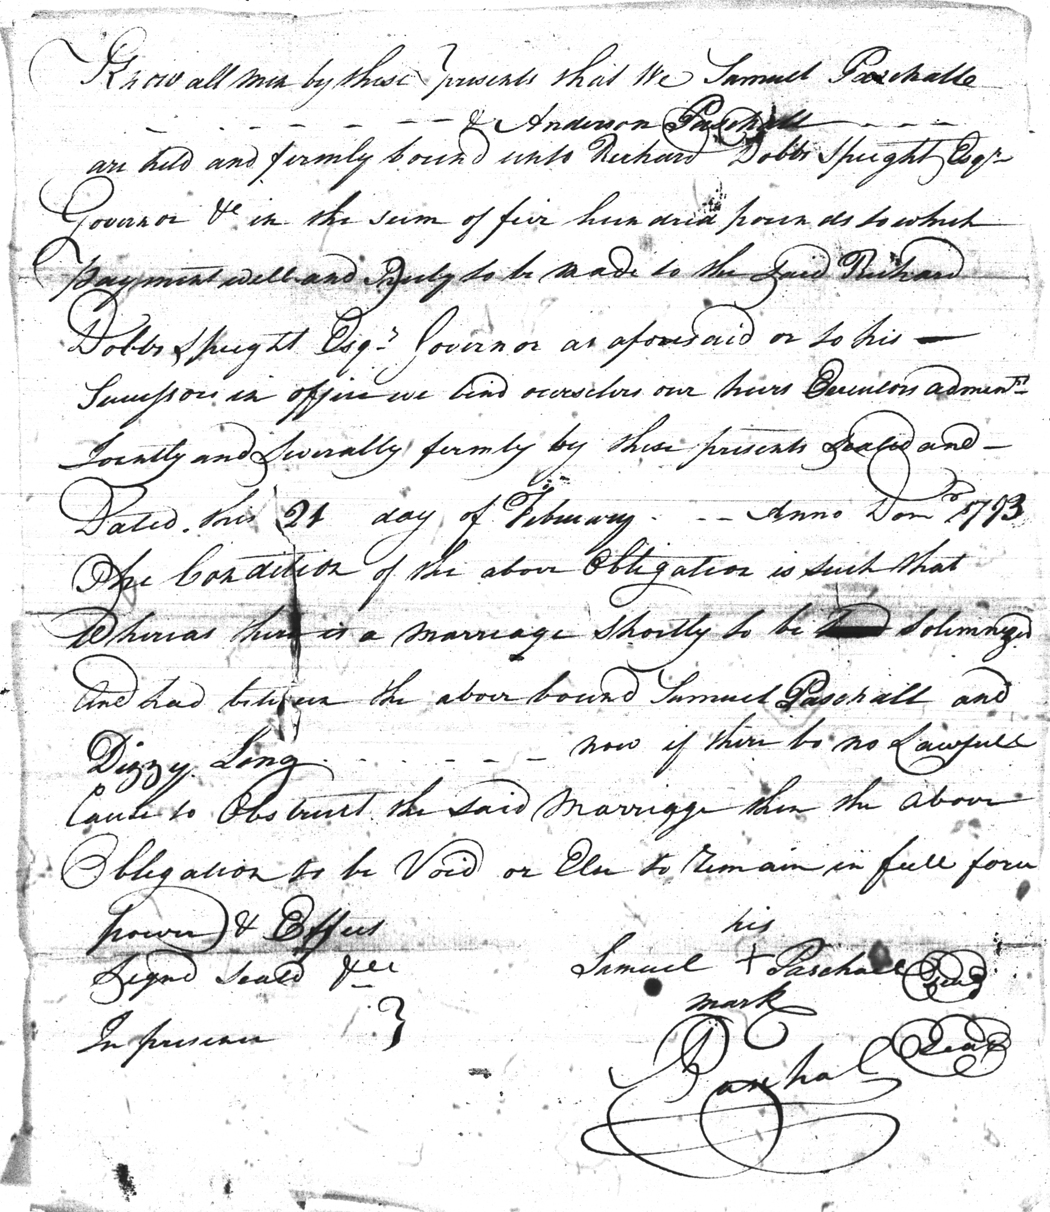 Know all men by these presents that We Samuel Paschall
& Anderson Paschall
are held and firmly bound unto Richard Dobbs Speight Esqr
Governor &c in the sum of five hundred pounds to which
payment well and Truly to be made to the Said Richard
Dobbs Speight Esqr Governor as aforesaid or to his
Successors in office we bind ourselves our heirs Executors admenrs
Jointly and Severally firmly by these presents Sealed and
Dated this 21 day of February Anno Dom 1793
The Condition of the above Obligation is such that
Whereas there is a marriage Shortly to be Solemnized
and had between the above bound Samuel Paschall and
Dizzy Ling now if there be no Lawfull
Cause to Obstruct the said Marriage then the above
Obligation to be Void or Else to remain in full force
power & Effect
his
Signd Seald &c
Samuel + Paschall Seal
mark
In presence
Seal
Paschal